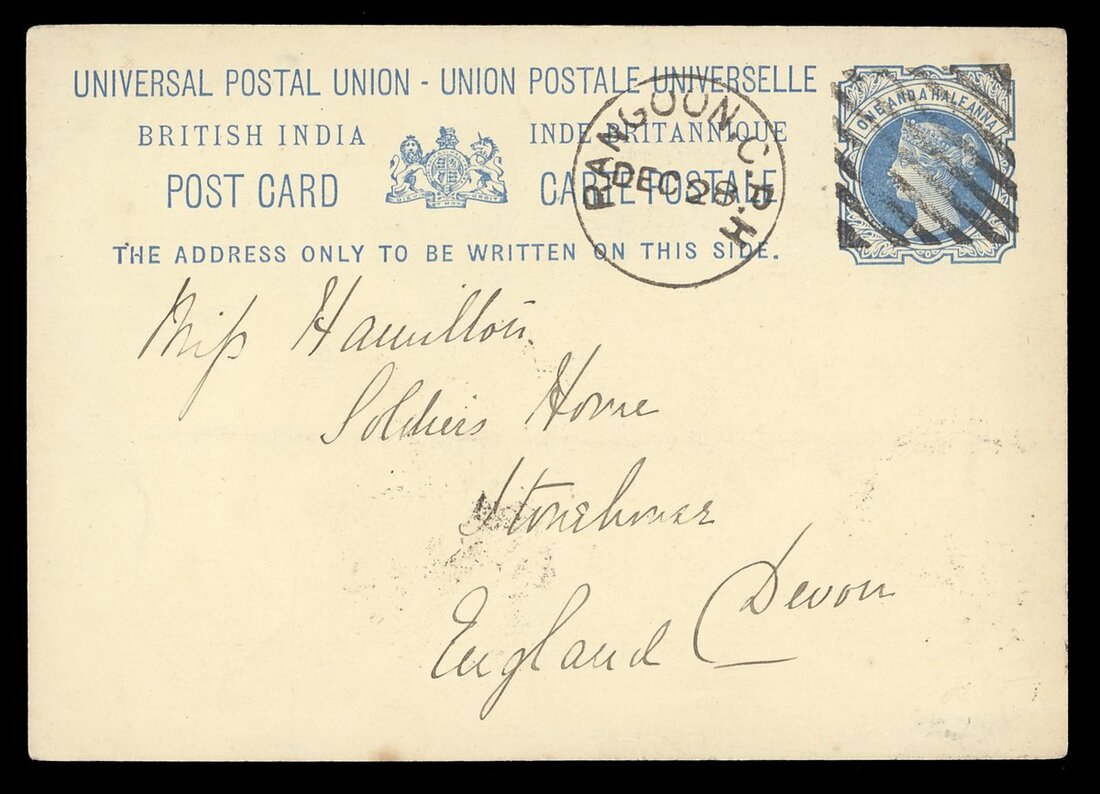 UNIVERSAL POSTAL UNION - UNION POSTALE UNIVERSELLE
BRITISH INDIA
INDE BRITANNIQUE
POST CARD
CARTE POSTALE
THE ADDRESS ONLY TO BE WRITTEN ON THIS SIDE.
ONE AND A HALF ANNA
RANGOON G.P.
DEC 28
H
Miss Hamilton
Soldiers Home
Stonehouse
Devon
England